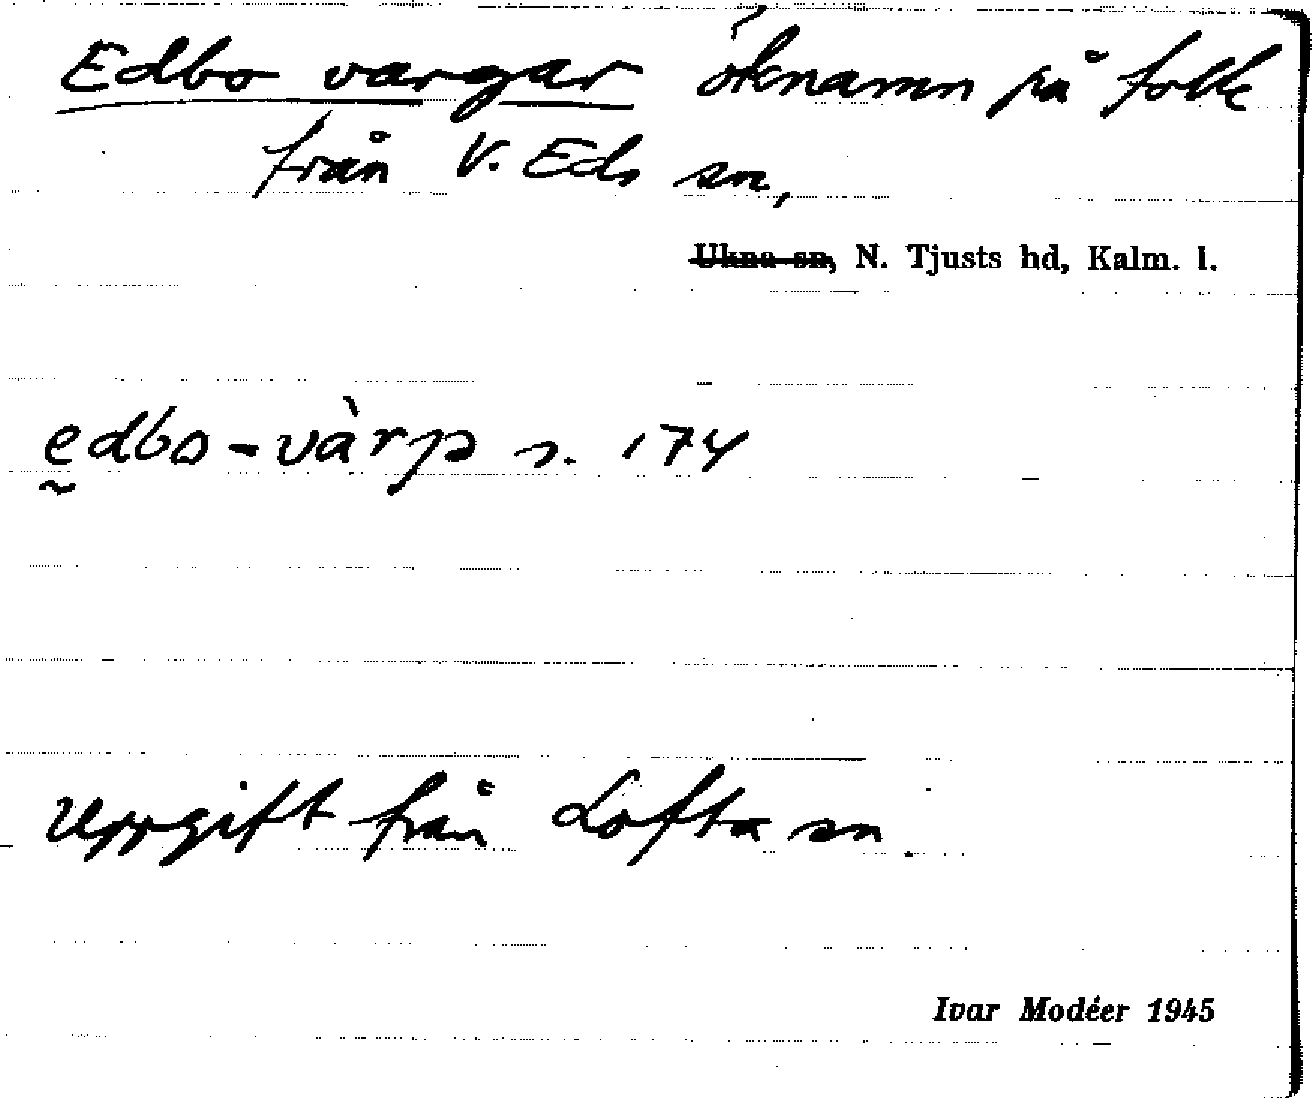 Edbo vargar öknamn på folk
från V. Eds sn,
Ukna sn, N. Tjusts hd, Kalm. l.
edbo-vàrp s. 174
Uppgift från Lofta sn.
Ivar Modéer 1945